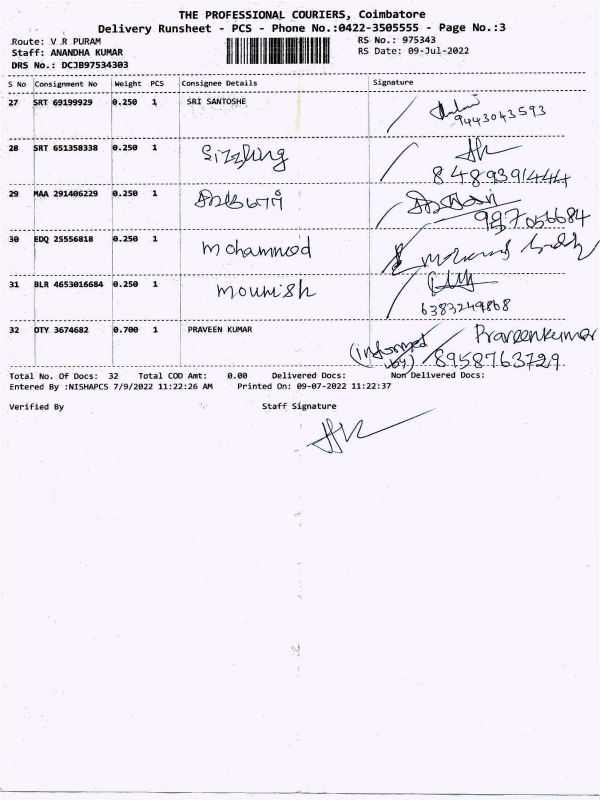 THE PROFESSIONAL COURIERS, Coimbatore
Delivery Runsheet - PCS - Phone No.:0422-3505555 - Page No.:3
Route: V R PURAM RS No.: 975343
Staff: ANANDHA KUMAR RS Date: 09-Jul-2022
DRS No.: DCJB97534303
S No Consignment No Weight PCS Consignee Details Signature
27 SRT 69199929 0.250 1 SRI SANTOSHE
9443043593
28 SRT 651358338 0.250 1 Sizzling
8489391444
29 MAA 291406229 0.250 1
997056684
30 EDQ 25556818 0.250 1 Mohammod
31 BLR 4653016684 0.250 1 Mounish
6383249868
32 OTY 3674682 0.700 1 PRAVEEN KUMAR Praveenkumar
(informed by) 8958763729
Total No. Of Docs: 32 Total COD Amt: 0.00 Delivered Docs: Non Delivered Docs:
Entered By :NISHAPCS 7/9/2022 11:22:26 AM Printed On: 09-07-2022 11:22:37
Verified By Staff Signature